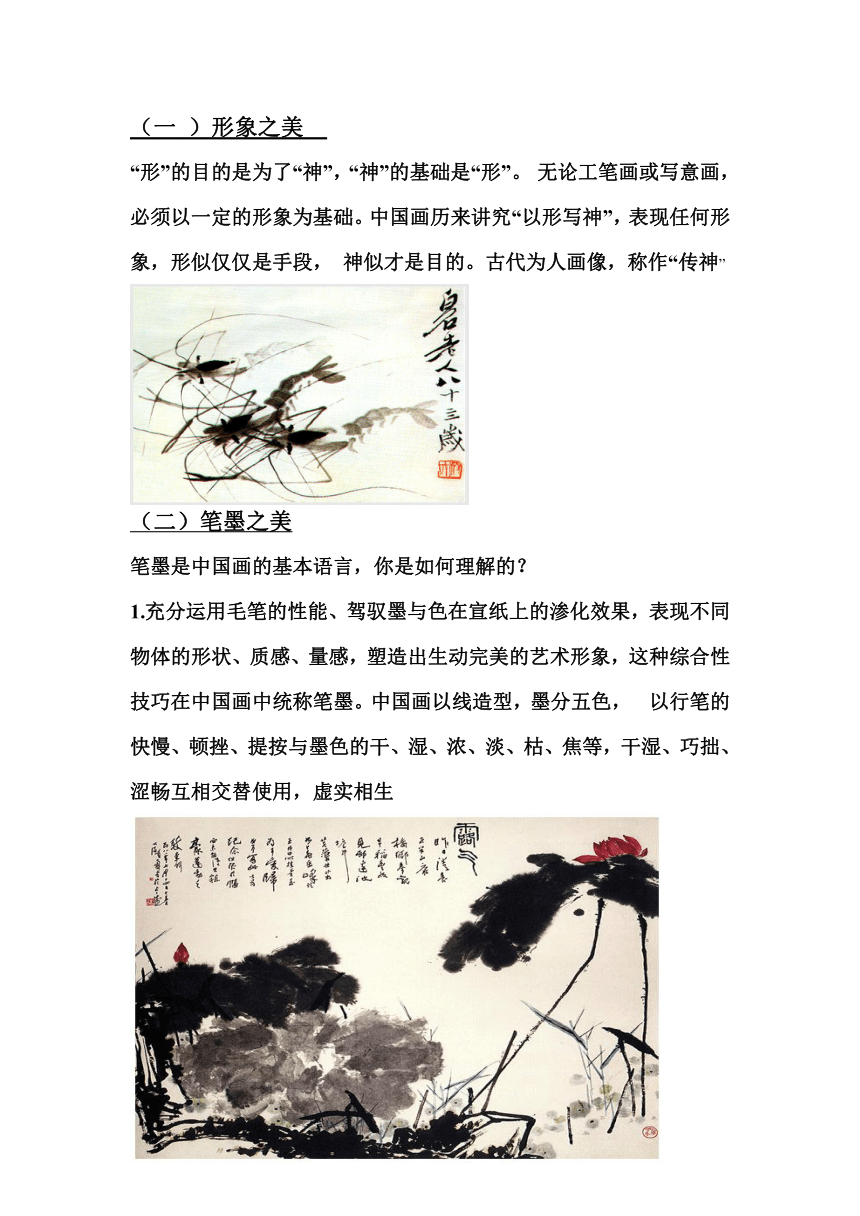 （一 ）形象之美
“形”的目的是为了“神”，“神”的基础是“形”。 无论工笔画或写意画，
必须以一定的形象为基础。中国画历来讲究“以形写神”，表现任何形
象，形似仅仅是手段， 神似才是目的。古代为人画像，称作“传神”
白石老人八十三岁
（二）笔墨之美
笔墨是中国画的基本语言，你是如何理解的？
1.充分运用毛笔的性能、驾驭墨与色在宣纸上的渗化效果，表现不同
物体的形状、质感、量感，塑造出生动完美的艺术形象，这种综合性
技巧在中国画中统称笔墨。中国画以线造型，墨分五色， 以行笔的
快慢、顿挫、提按与墨色的干、湿、浓、淡、枯、焦等，干湿、巧拙、
涩畅互相交替使用，虚实相生